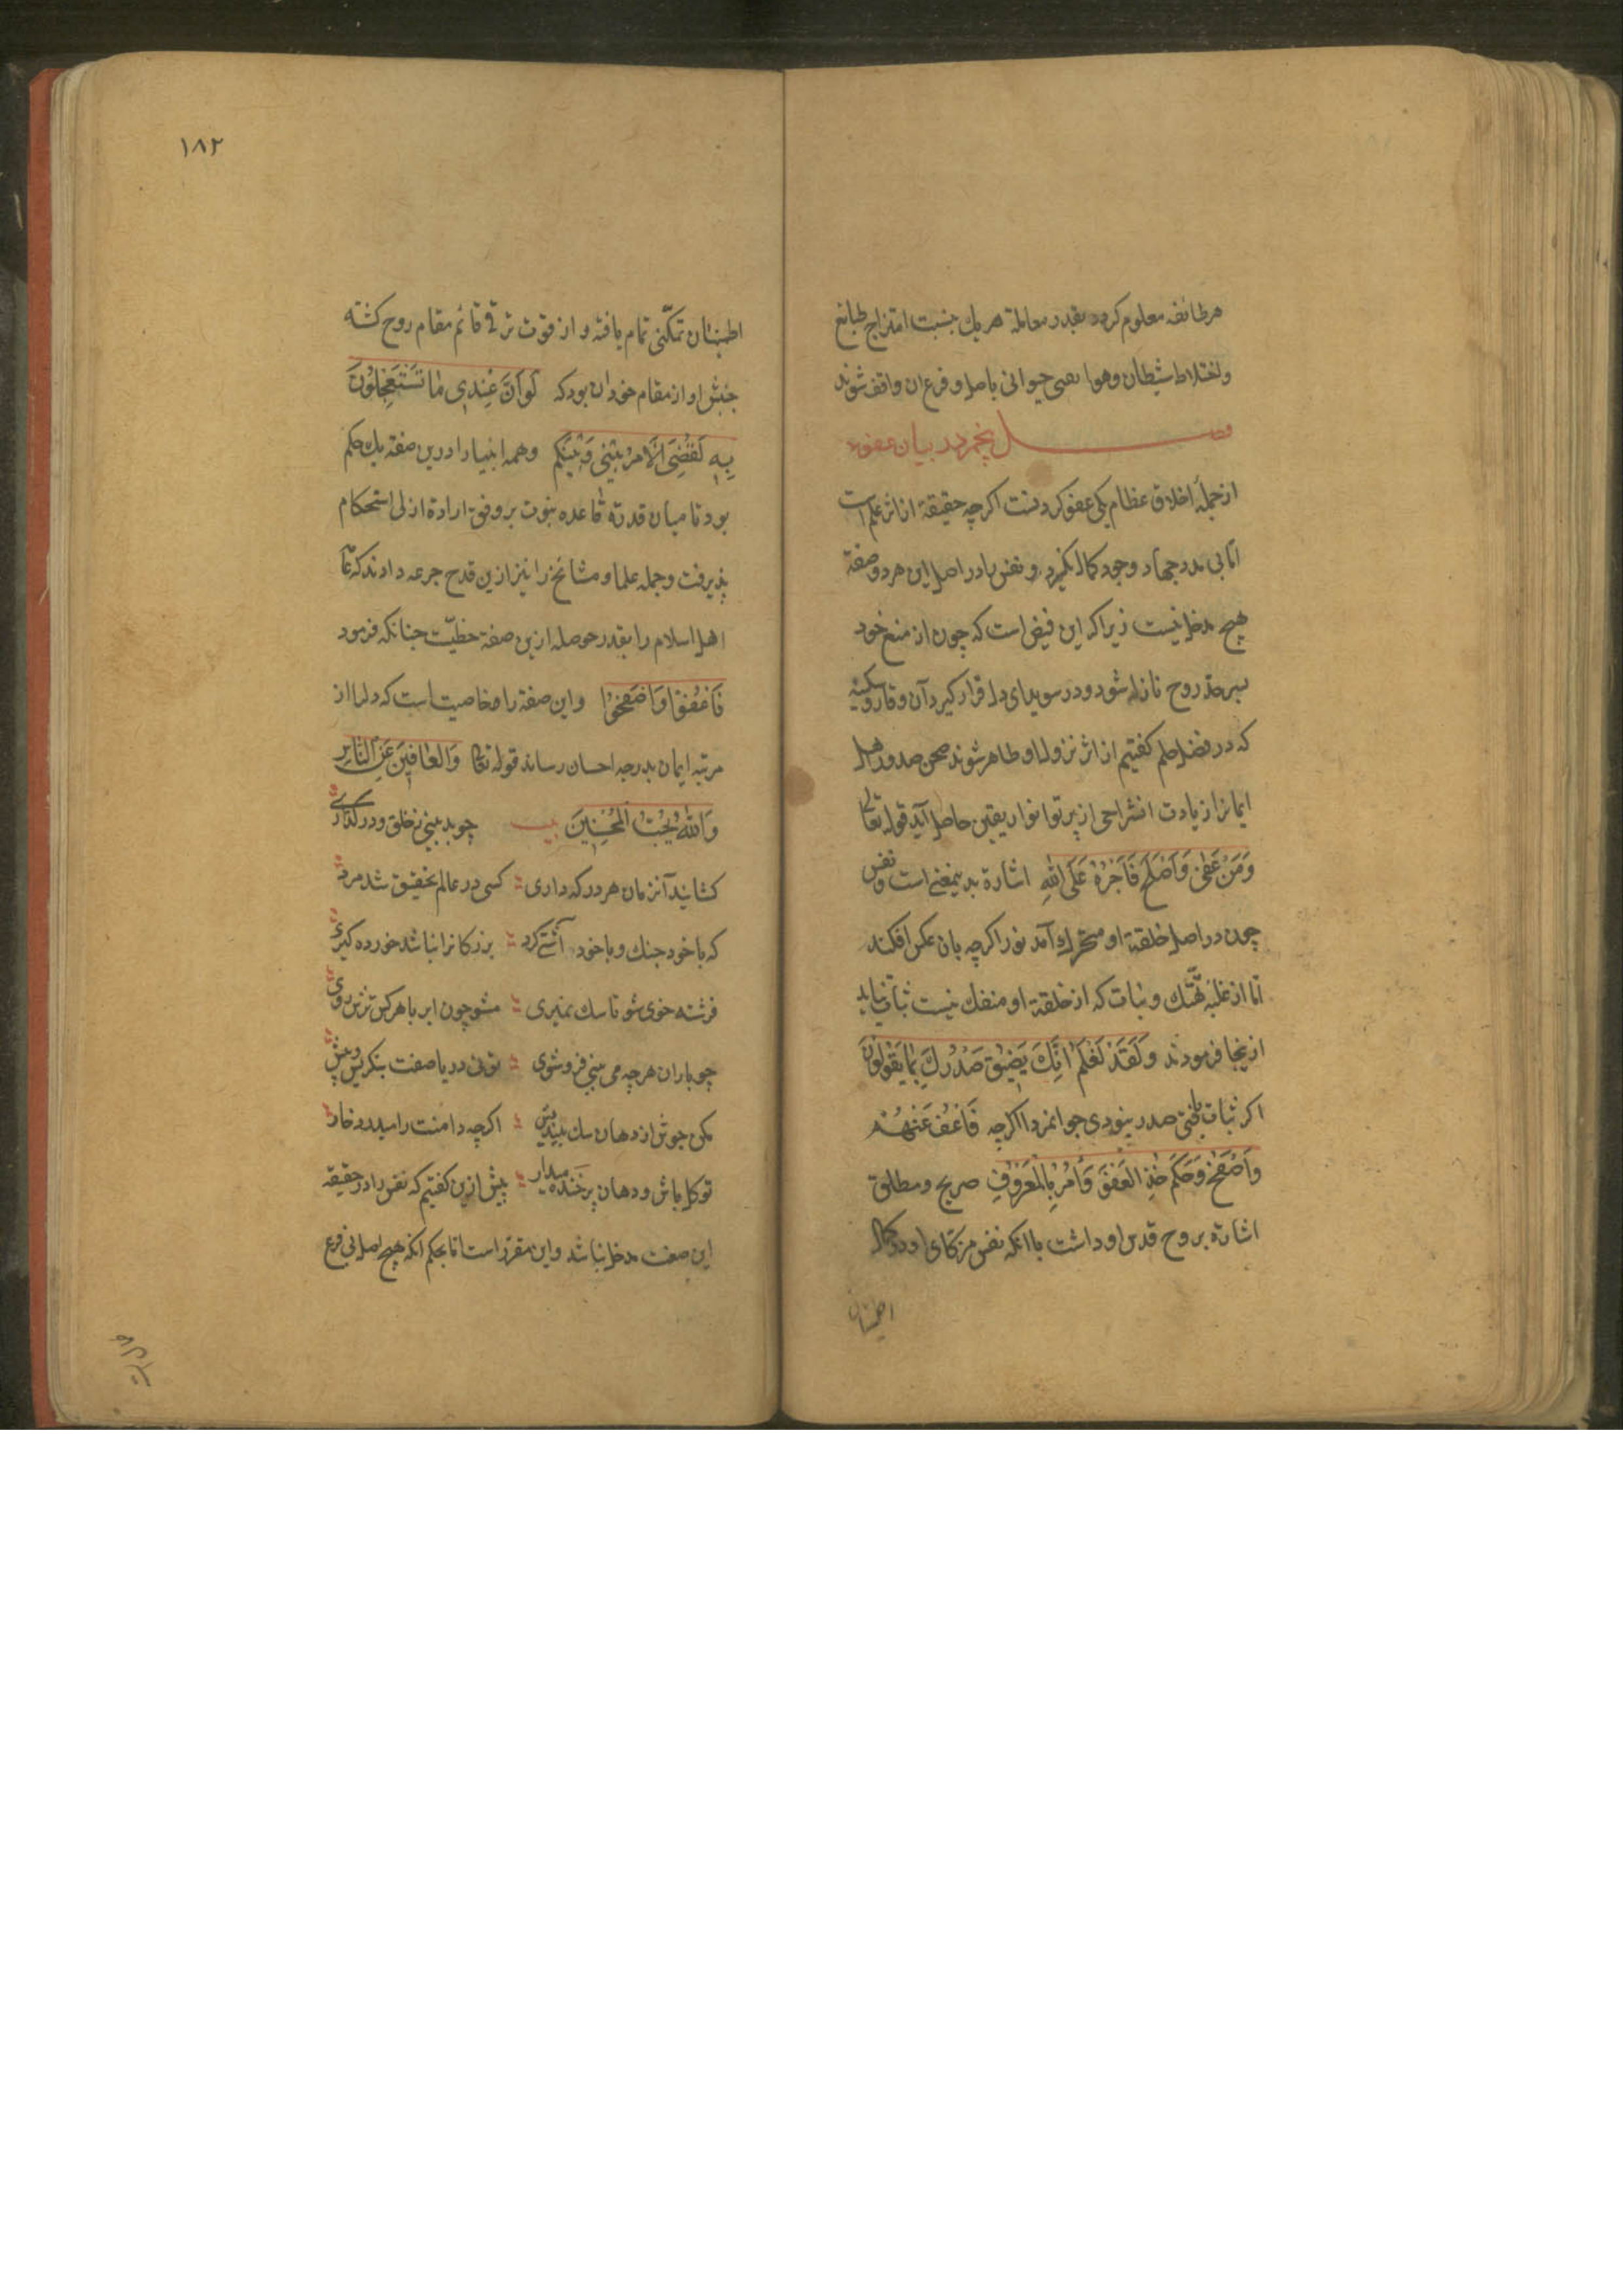 هر طائفه معلوم کردد بقدر معاملة هریك بنسبت امتزاج طبایع
واختلاط شیطان وهوا یعنی حیوانی باصل و فرع ان واقف شوند
فصل پنجم در بیان عفو
از جملهٔ اخلاق عظام یکی عفو کردنست اکرچه حقیقة از اثر علم است
امّا بی مدد جهاد وجود کمال نکیرد و نفس را در اصل این هر دو صفة
هیچ مدخل نیست زیرا که این فیضی است که چون از منبع خود
بسرحدّ روح نازل شود و در سویدای دل قرار کیرد آن وقار و سکینه
که در فضل حلم کفتیم از اثر نزول او ظاهر شوند صحن صدور اهل
ایمانرا زیادت انشراحی از پرتو انوار یقین حاصل آید قوله تعالی
وَمَنْ عَفیٰ وَاَصْلَحَ فَاَجْرُهُ عَلَی اللّٰهِ اشارة بدینمعنی است و نفس
چون در اصل خلقة او متحرك آمد نور اکرچه بان عکس افکند
امّا از غلبه تهتّك و بنات که از خلقة او منفك نیست ثبات نیابد
ازینجا فرمودند وَلَقَدْ نَعْلَمُ اَنَّكَ یَضِیْقُ صَدْرُكَ بِمٰا یَقُوْلُوْنَ
اکر ثبات یافتی صدر بنودی جوانمردا اکرچه فَاعْفُ عَنْهُمْ
وَاصْفَحْ وَحَكَمَ خُذِ الْعَفْوَ وَأْمُرْ بِالْمَعْرُوْفِ صریح و مطلق
اشارة بروح قدس او داشت با انکه نفس مزکّای او در کمال
اطمینان
١٨٢
اطمینان تمکّنی تمام یافته و از قوت ترقی قائم مقام روح کشته
جنبش او از مقام خود ان بود که لَوْ اَنَّ عِنْدِی مٰا تَسْتَعْجِلُوْنَ
بِهِ لَقُضِیَ الْاَمْرُ بَیْنِی وَبَیْنَكُمْ وهمه انبیا را درین صفة یك حکم
بود تا میان قدرة قاعده نبوت بر وفق ارادة ازلی استحکام
پذیرفت و جمله علما و مشائخ را نیز ازین قدح جرعه دادند که تا
اهل اسلام را بقدر حوصله ازین صفة حظّیست چنانکه فرمود
فَاعْفُوْا وَاصْفَحُوْا واین صفة را خاصیت است که دلها از
مرتبه ایمان بدرجه احسان رساند قوله تعالی وَالْعٰافِیْنَ عَنِ النّٰاسِ
وَاللّٰهُ یُحِبُّ الْمُحْسِنِیْنَ بیت چو بد بینی ز خلق و در کذاری
کشاید آنزمان هر در که داری کسی در عالم تحقیق شد مرد
که با خود جنك و با خود آشتی کرد بزرکانرا نباشد خورده کیری
فرشته خوی شو تا سك نمیری مشو چون ابر با هر کس ترش روی
چو باران هرچه می بینی فرو شوی توئی دریا صفت بنکر پس و پیش
مکن جوش از دهان سك بیندیش اکرچه دامنت را میدرد خار
تو کل باش و دهان پر خنده میدار پیش ازین کفتیم که نفس را در حقیقة
این صفت مدخل نباشد واین مقرّر است امّا بحکم انکه هیچ اصل بی فرع